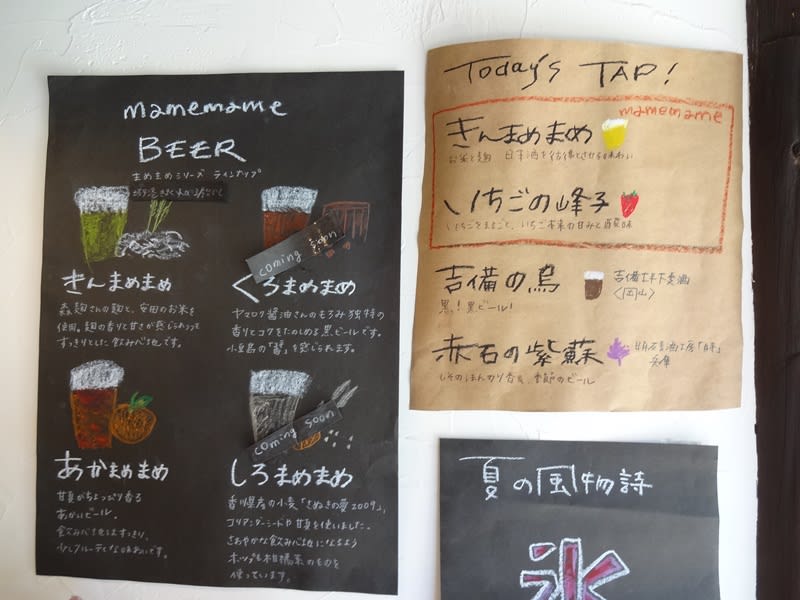 mamemame
BEER
まめまめシリーズ ラインナップ
きんまめまめ
森麹さんの麹と、安田のお米を
使用。麹の香りと甘さが感じられつつ
すっきりとした飲みべ心地です。
coming soon
くろまめまめ
ヤマロク醤油さんのもろみ独特の
香りとコクをたのしめる黒ビールです。
小豆島の「醤」を感じられます。
あかまめまめ
甘夏がちょっぴり香る
あかいビール。
飲みべ心地はすっきり、
少しフルーティな味わいです。
coming soon
しろまめまめ
香川県産の小麦「さぬきの夢2009」、
コリアンダーシードや甘夏を使いました。
さわやかな飲みべ心地になるよう
ホップも柑橘系のものを
使っています。
Today's TAP!
mamemame
きんまめまめ
お米と麹 日本酒を彷彿とさせる味わい
いちごの峰子
いちごをまるごと、いちご本来の甘みと酸味
吉備の烏
黒!黒ビール!
吉備土手下麦酒
〈岡山〉
赤石の紫蘇
しそのほんのり香る、季節のビール
明石麦酒工房「時季」
兵庫
夏の風物詩
氷